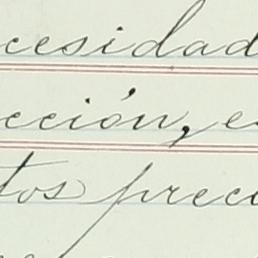 cesidad
cción, e
tos prec